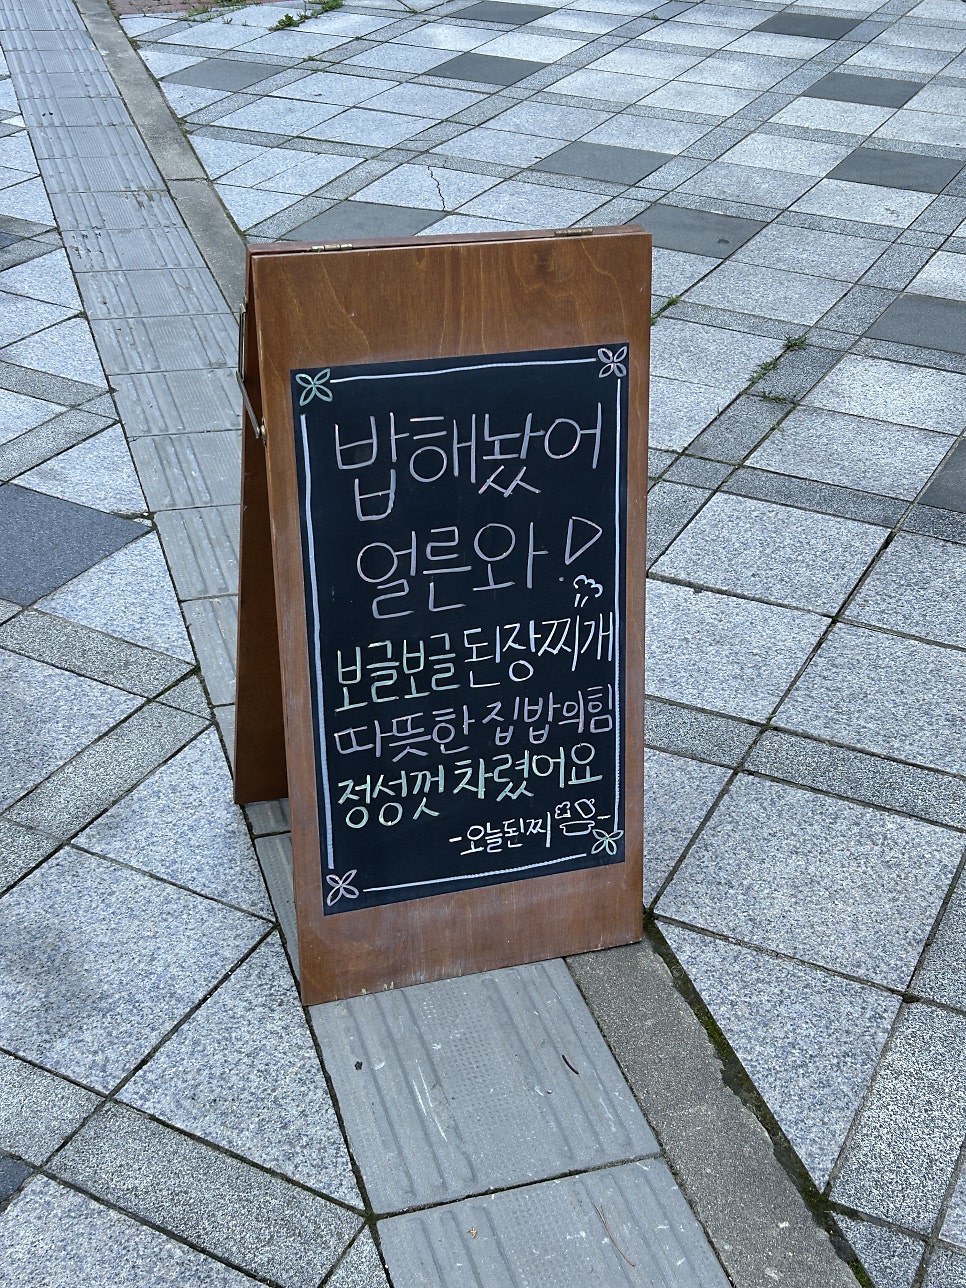 밥해놨어
얼른와!
보글보글 된장찌개
따뜻한 집밥의힘
정성껏 차렸어요
-오늘된찌-